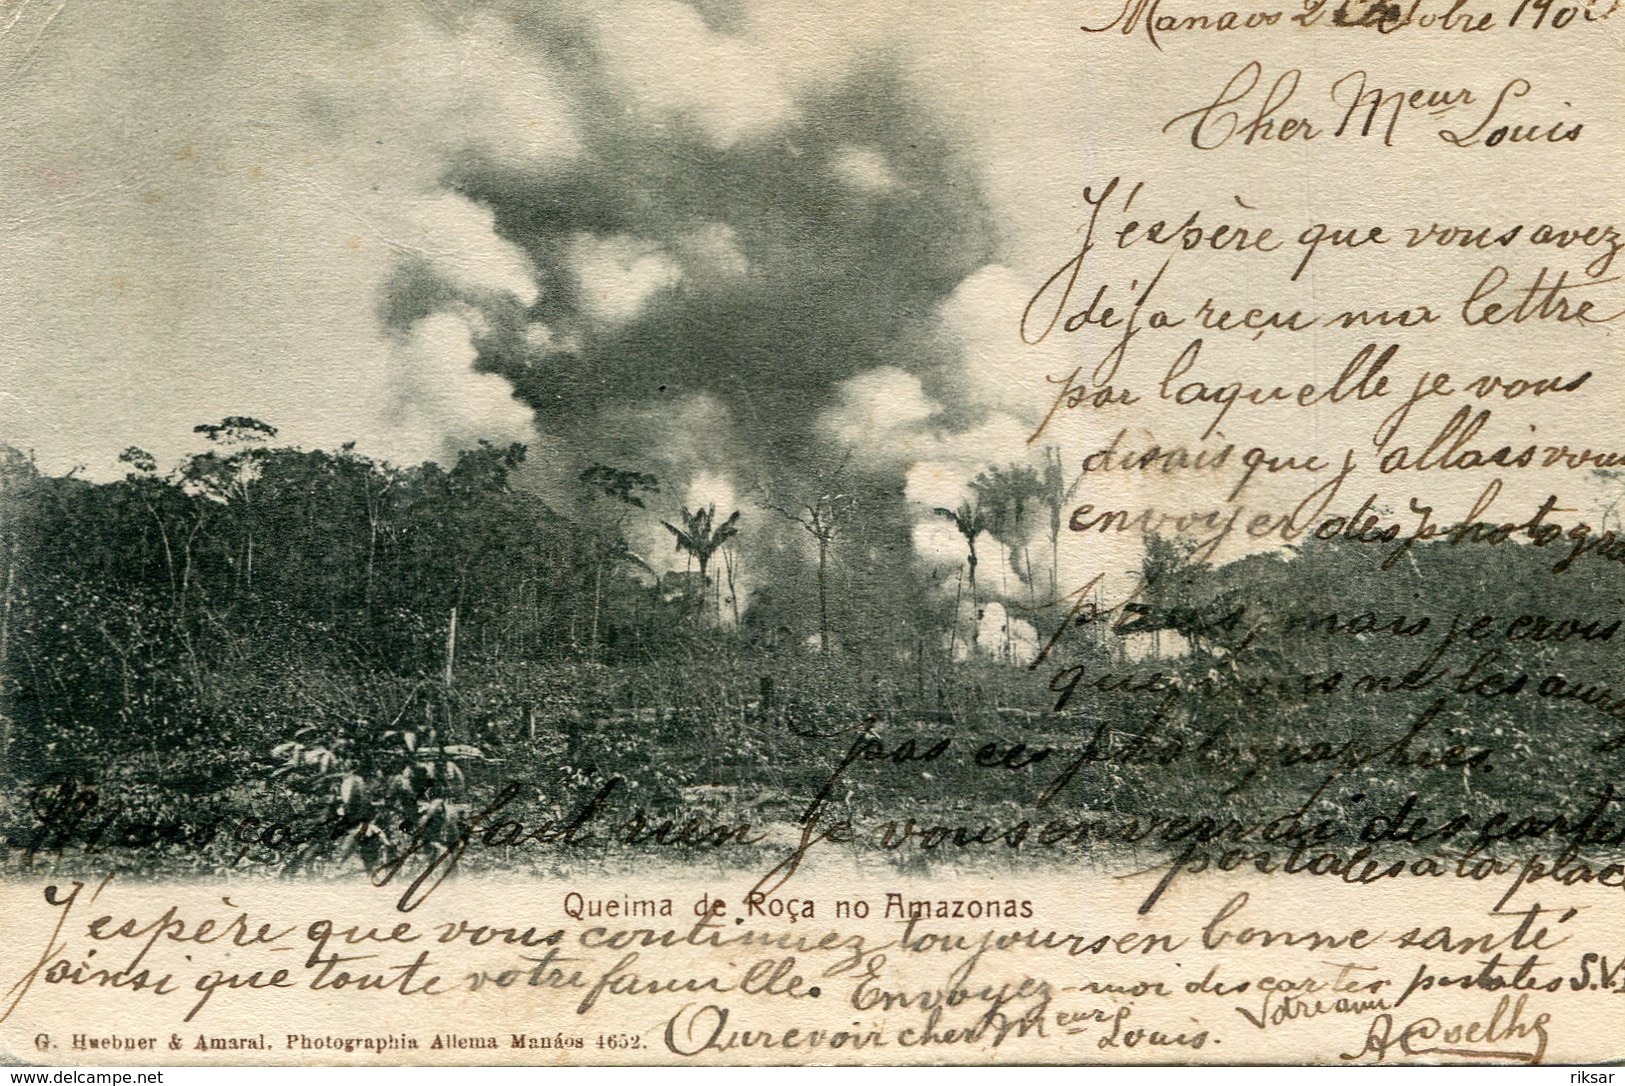 Manaos 2 Octobre 190
Cher Meur Louis
J'espère que vous avez
déja reçu ma lettre
par laquelle je vous
disais que j'allais vous
envoyer des photogra
phies, mais je crois
que vous ne les aurez
pas ces photographies.
Mais ça n'y fait rien Je vous enverrai des cartes
postales a la place
Queima de Roça no Amazonas
J'espère que vous continuez toujours en bonne santé
ainsi que toute votre famille. Envoyez-moi des cartes postales S.V.
Aurevoir cher Meur Louis. Votre ami
G. Huebner & Amaral, Photographia Allema Manáos 4652.
www.delcampe.net
riksar